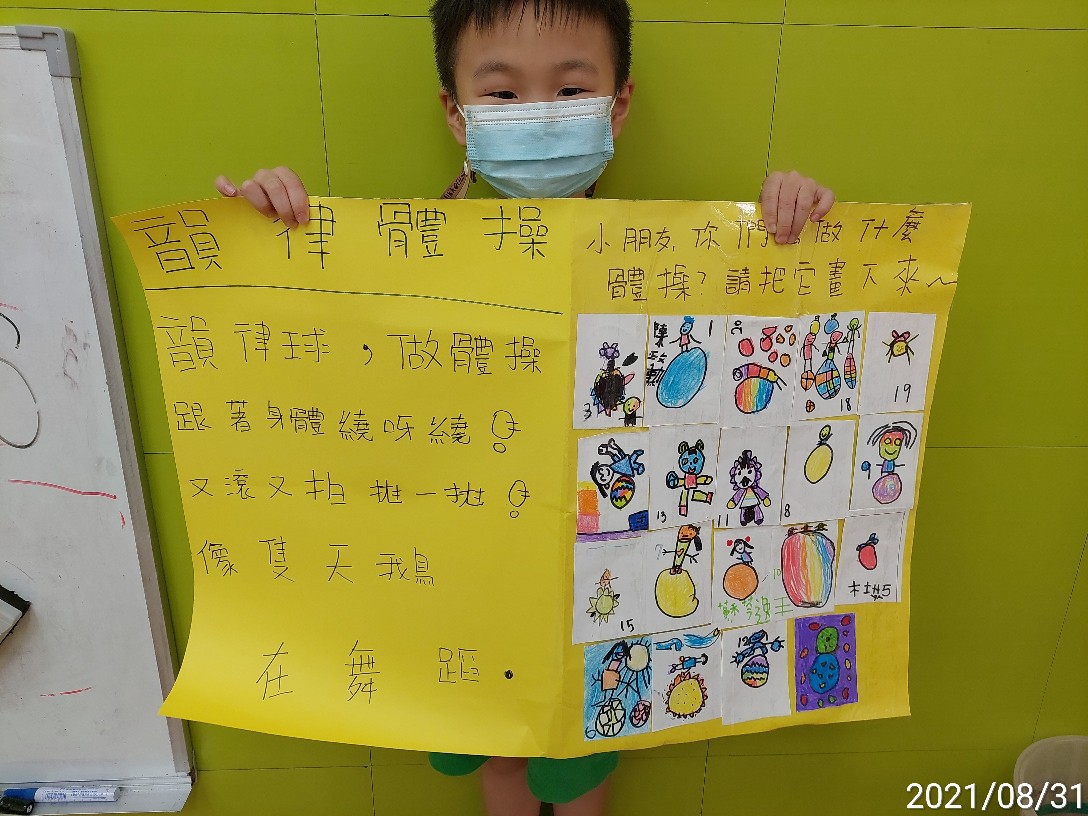 韻律體操
韻律球，做體操
跟著身體繞呀繞！
又滾又拍拋一拋！
像隻天鵝鳥
在舞蹈．
小朋友，你們做什麼
體操？請把它畫下來～
3
1
9
18
19
13
11
8
15
7
10
5
6
12
2021/08/31